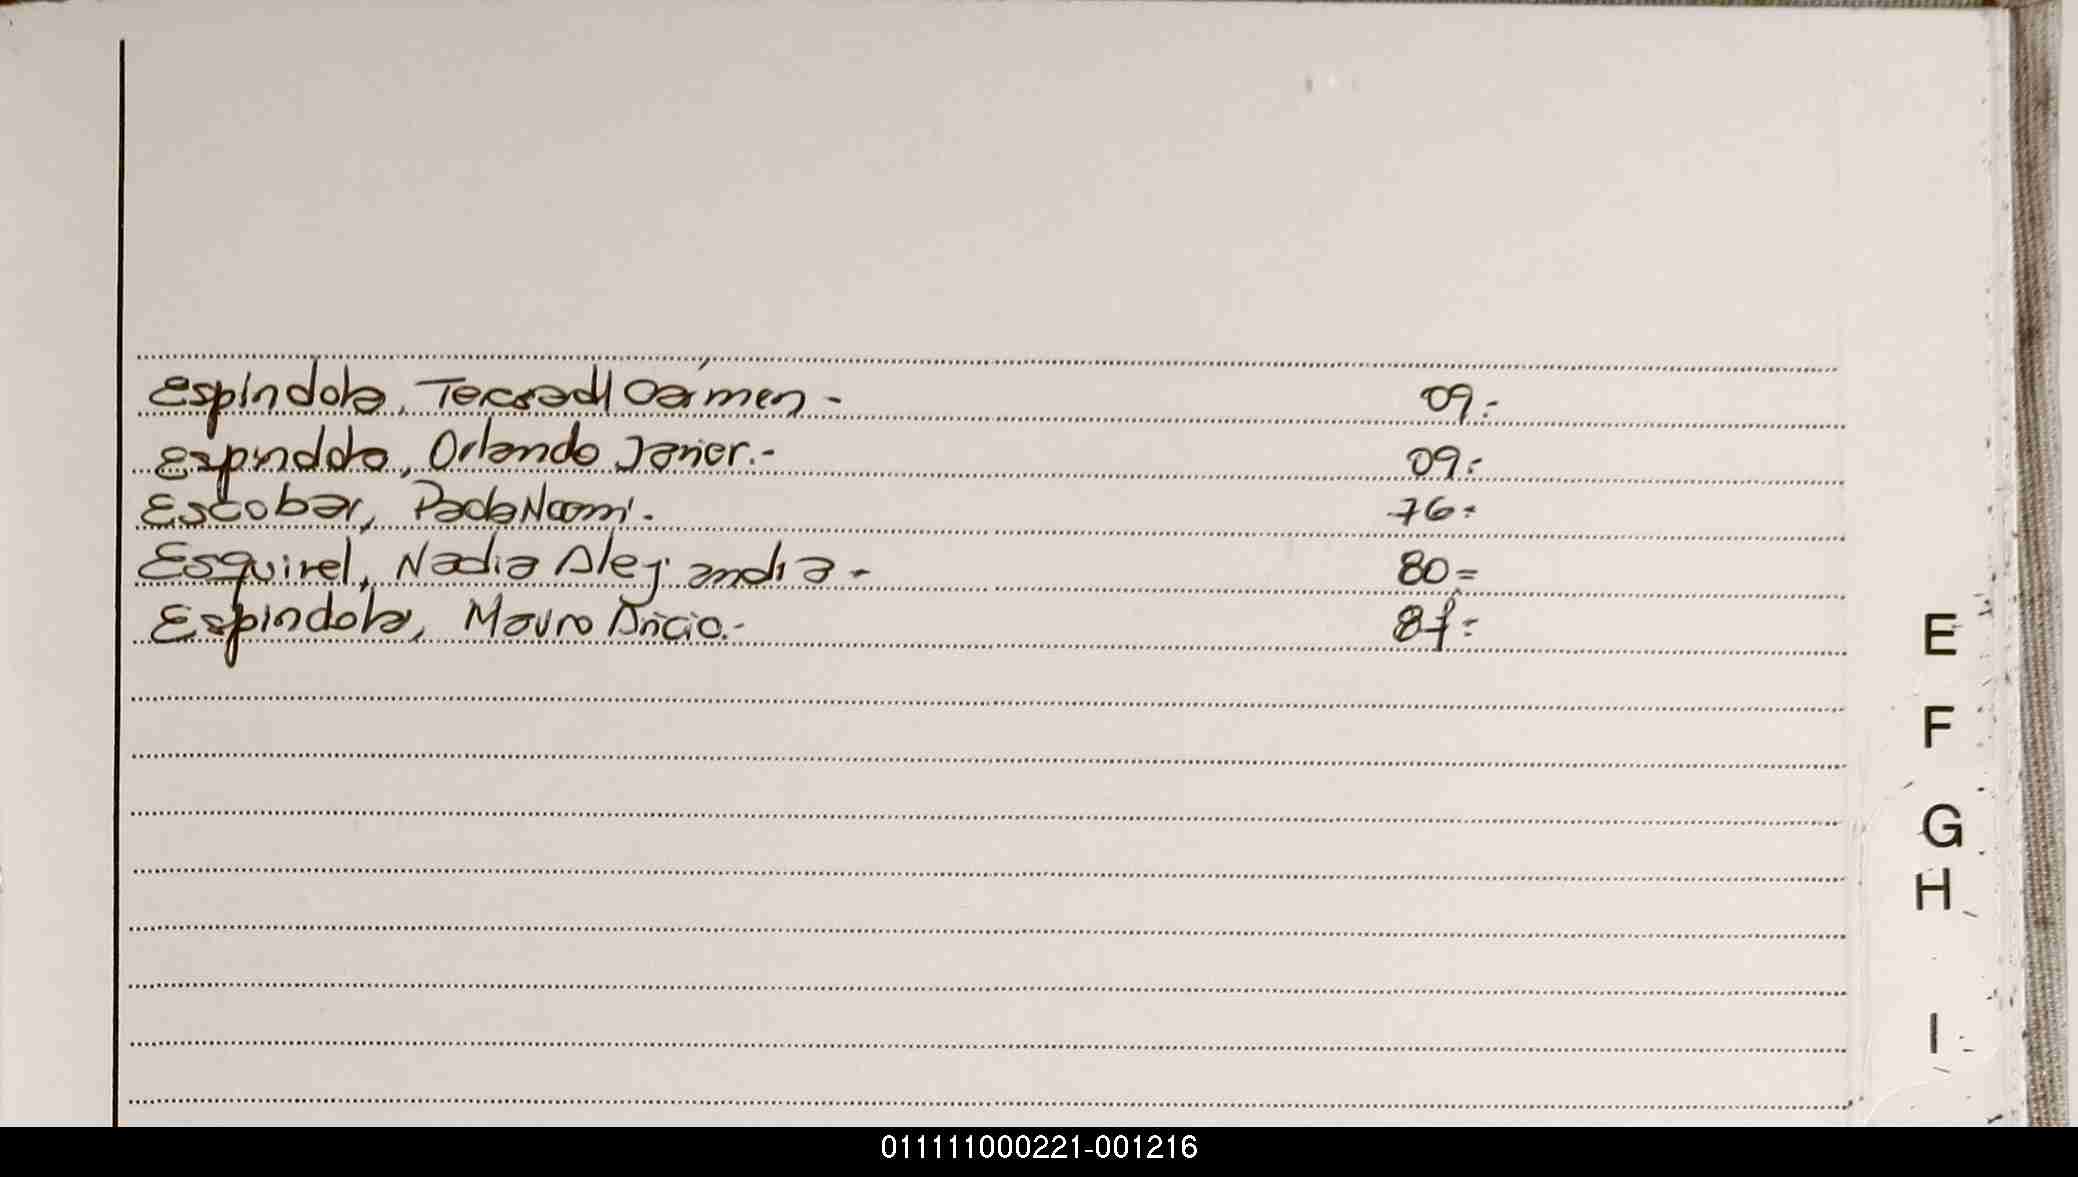 Espindola, Teresa del Carmen - 09.-
Espindola, Orlando Javier.- 09.-
Escobar, Paola Noemi. 76.-
Esquivel, Nadia Alejandra - 80=
Espindola, Mauro 
E
F
G
H
I
011111000221-001216